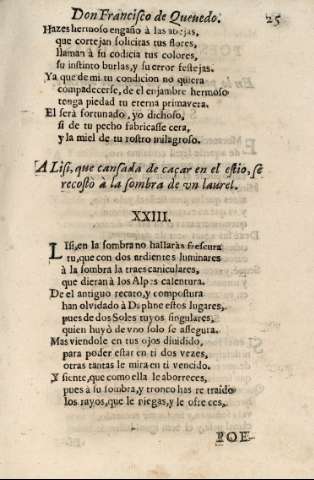 Don Francisco de Quevedo. 25
Hazes hermoso engaño à las abejas,
que cortejan solicitas tus flores,
llaman à su codicia tus colores,
su instinto burlas, y su error festejas.
Ya que de mi tu condicion no quiera
compadecerse, de el enjambre hermoso
tenga piedad tu eterna primavera.
El serà fortunado, yo dichoso,
si de tu pecho fabricasse cera,
y la miel de tu rostro milagroso.
A Lisi, que cansada de caçar en el estio, se
recostò à la sombra de vn laurel.
XXIII.
LIsi, en la sombra no hallaràs frescura
tu, que con dos ardientes luminares
à la sombra la traes caniculares,
que dieran à los Alpes calentura.
De el antiguo recato, y compostura
han olvidado à Daphne estos lugares,
pues de dos Soles tuyos singulares,
quien huyò de vno solo se assegura.
Mas viendole en tus ojos dividido,
para poder estar en ti dos vezes,
otras tantas le mira en ti vencido.
Y siente, que como ella le aborreces,
pues à su sombra, y tronco has retraido
los rayos, que le niegas, y le ofreces.
POE-